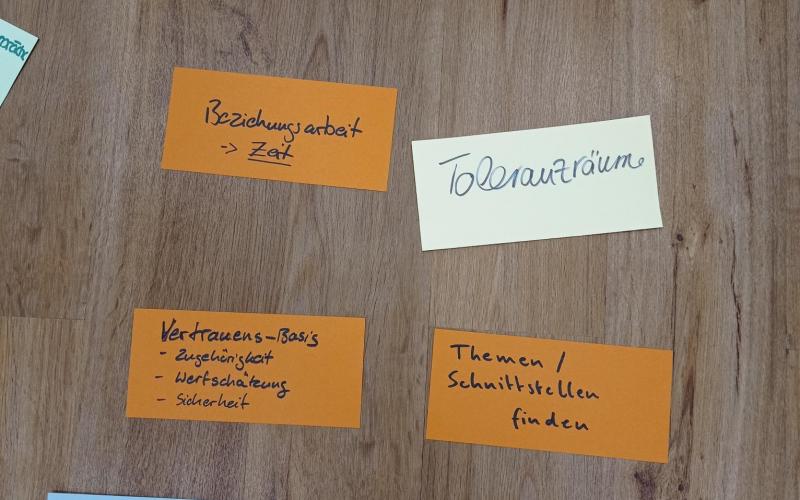 Beziehungsarbeit
-> Zeit
Toleranzräume
Vertrauens-Basis
- Zugehörigkeit
- Wertschätzung
- Sicherheit
Themen /
Schnittstellen
finden